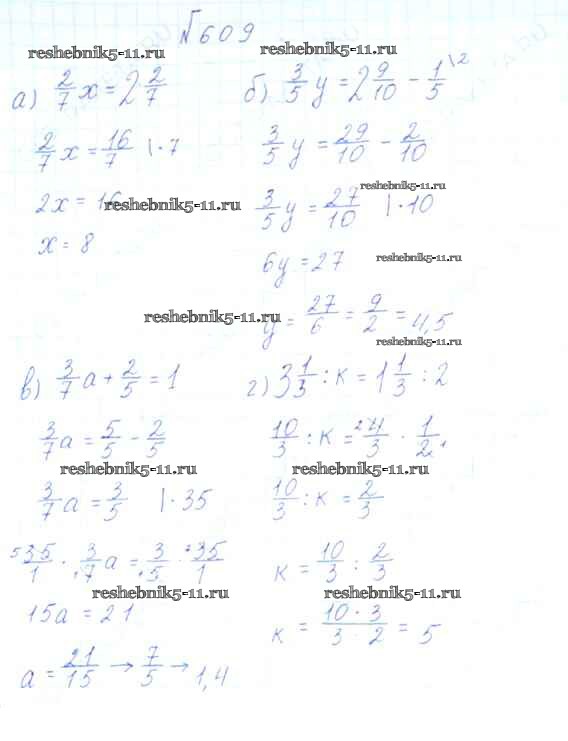 №609
reshebnik5-11.ru reshebnik5-11.ru
а) 2/7 x = 2 2/7
2/7 x = 16/7 |·7
2x = 16
reshebnik5-11.ru
x = 8
б) 3/5 y = 2 9/10 - 1/5 \2
3/5 y = 29/10 - 2/10
reshebnik5-11.ru
3/5 y = 27/10 |·10
6y = 27
reshebnik5-11.ru
reshebnik5-11.ru
y = 27/6 = 9/2 = 4,5
reshebnik5-11.ru
в) 3/7 a + 2/5 = 1
3/7 a = 5/5 - 2/5
reshebnik5-11.ru
3/7 a = 3/5 |·35
35/1 · 3/7 a = 3/5 · 35/1
reshebnik5-11.ru
15a = 21
a = 21/15 → 7/5 → 1,4
г) 3 1/3 : к = 1 1/3 : 2
10/3 : к = 4/3 · 1/2
reshebnik5-11.ru
10/3 : к = 2/3
к = 10/3 : 2/3
reshebnik5-11.ru
к = 10·3/3·2 = 5